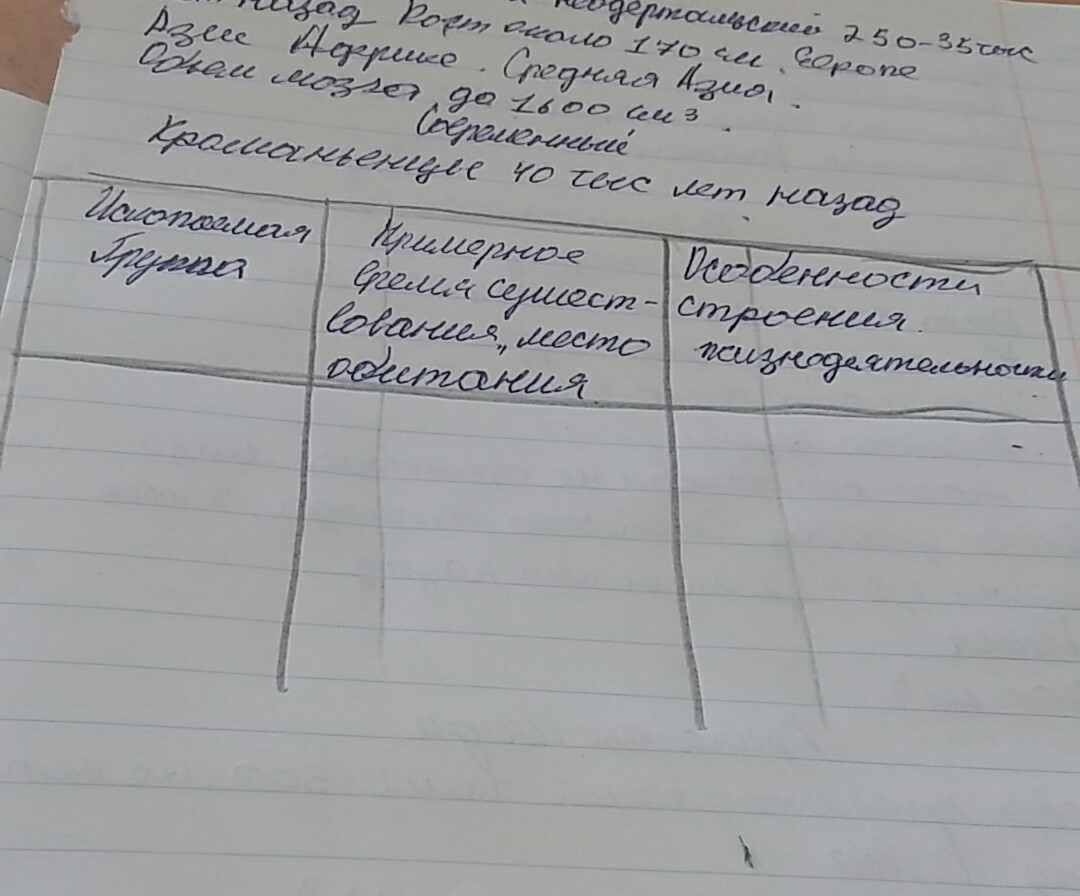 назад Рост около 170 см. Европе
неодертальский 250-35 тыс
Азии Африке. Средняя Азия.
Объем мозга до 1600 см³.
Современный
Кроманьенцы 40 тыс лет назад
Ископаемая
группа
Примерное
время сущест-
вования, место
обитания
Особенности
строения.
жизнедеятельности